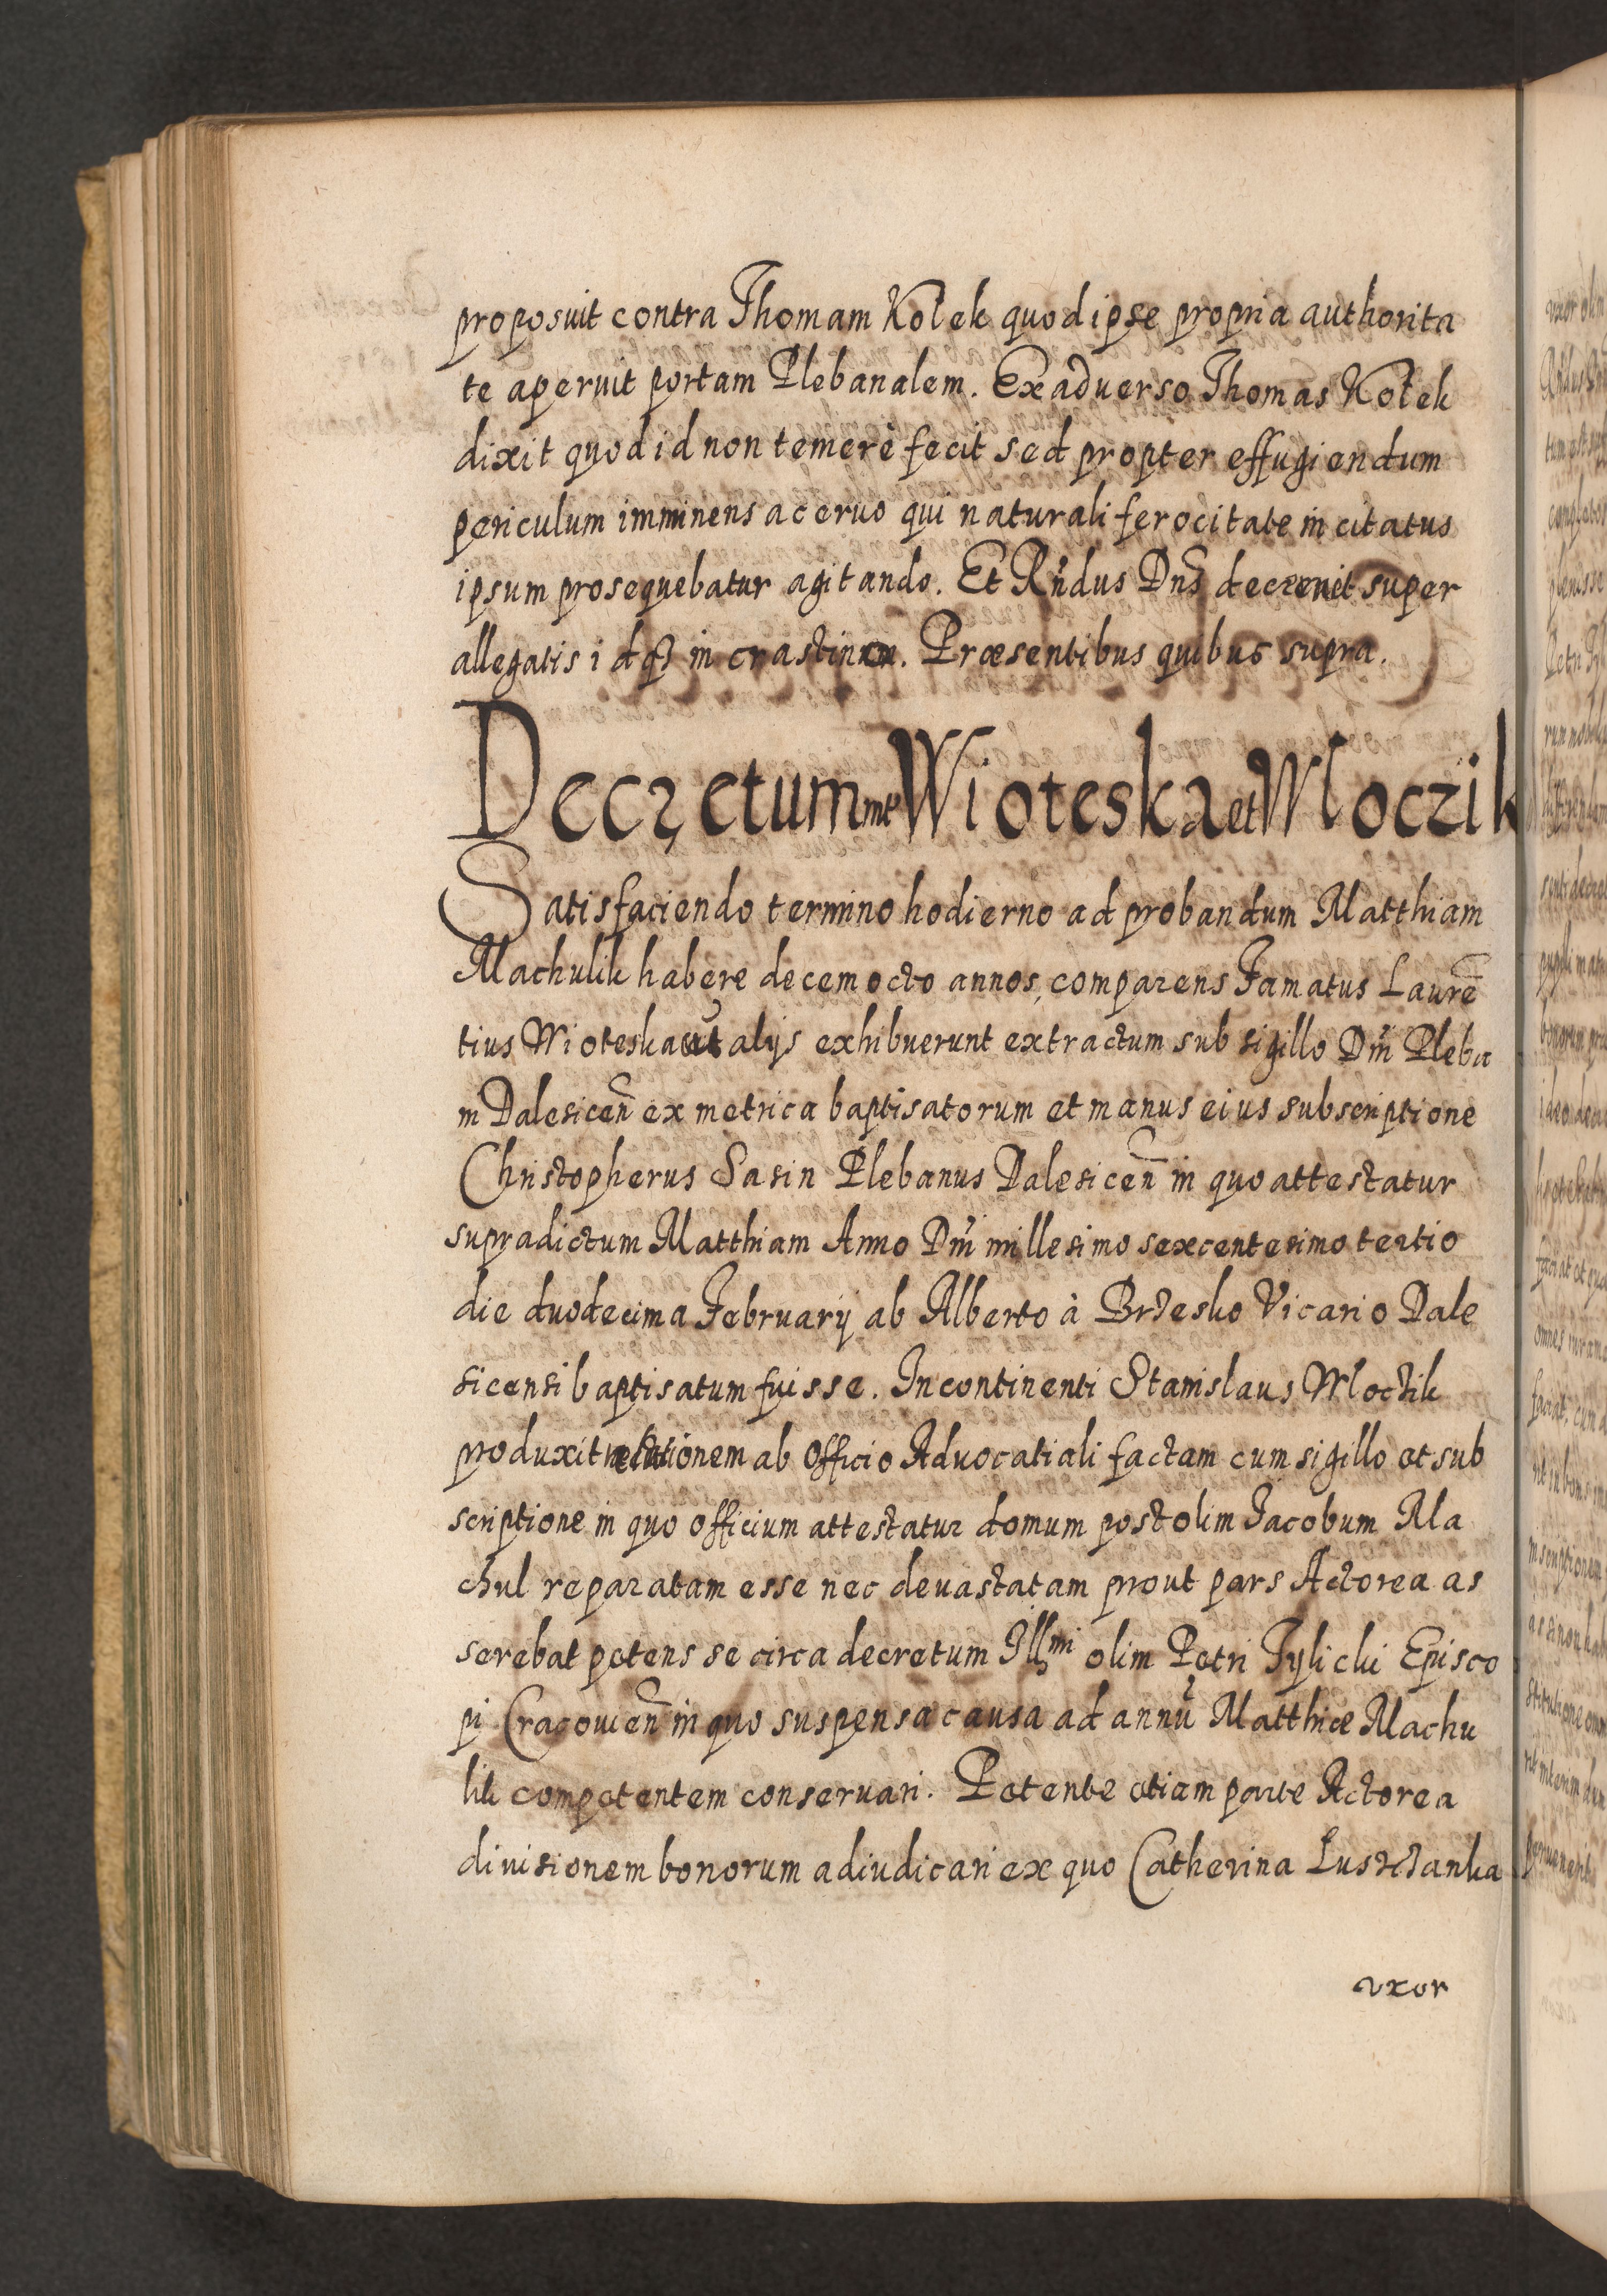 proposuit contra Thomam Kotek quod ipse propria authorita
te aperuit portam Plebanalem. Ex aduerso Thomas Kotek
dixit quod id non temerè fecit sed propter effugiendum
periculum imminens a ceruo qui naturali ferocitate incitatus
ipsum prosequebatur agitando. Et Rñdus Dñs decrevit super
allegatis idqȝ in crastinum. Præsentibus quibus supra.
Decretum inter Wioteska et Wloczik
Satisfaciendo termino hodierno ad probandum Matthiam
Machulik habere decem octo annos, comparens Famatus Laurē
tius Wioteska alijs exhibuerunt extractum sub sigillo Dñi Pleba
ni Dalesiceñ ex metrica baptisatorum et manus eius subscriptione
Christopherus Sasin Plebanus Dalesiceñ in quo attestatur
supradictum Matthiam Anno Dñi millesimo sexcentesimo tertio
die duodecima Februarij ab Alberto à Brzesko Vicario Dale
sicensi baptisatum fuisse. In continenti Stanislaus Wloczik
produxit ab Officio Advocatiali factam cum sigillo et sub
scriptione in quo officium attestatur domum post olim Jacobum Ma
chul reparatam esse nec deuastatam prout pars Actorea as
serebat petens se circa decretum Illmi olim Petri Tylicki Episco
pi Cracouieñ in quo suspensa causa ad annũ Matthiæ Machu
lik competentem conseruari. Petente etiam parte Actorea
diuisionem bonorum adiudicari ex quo Catherina Luszczanka
uxor